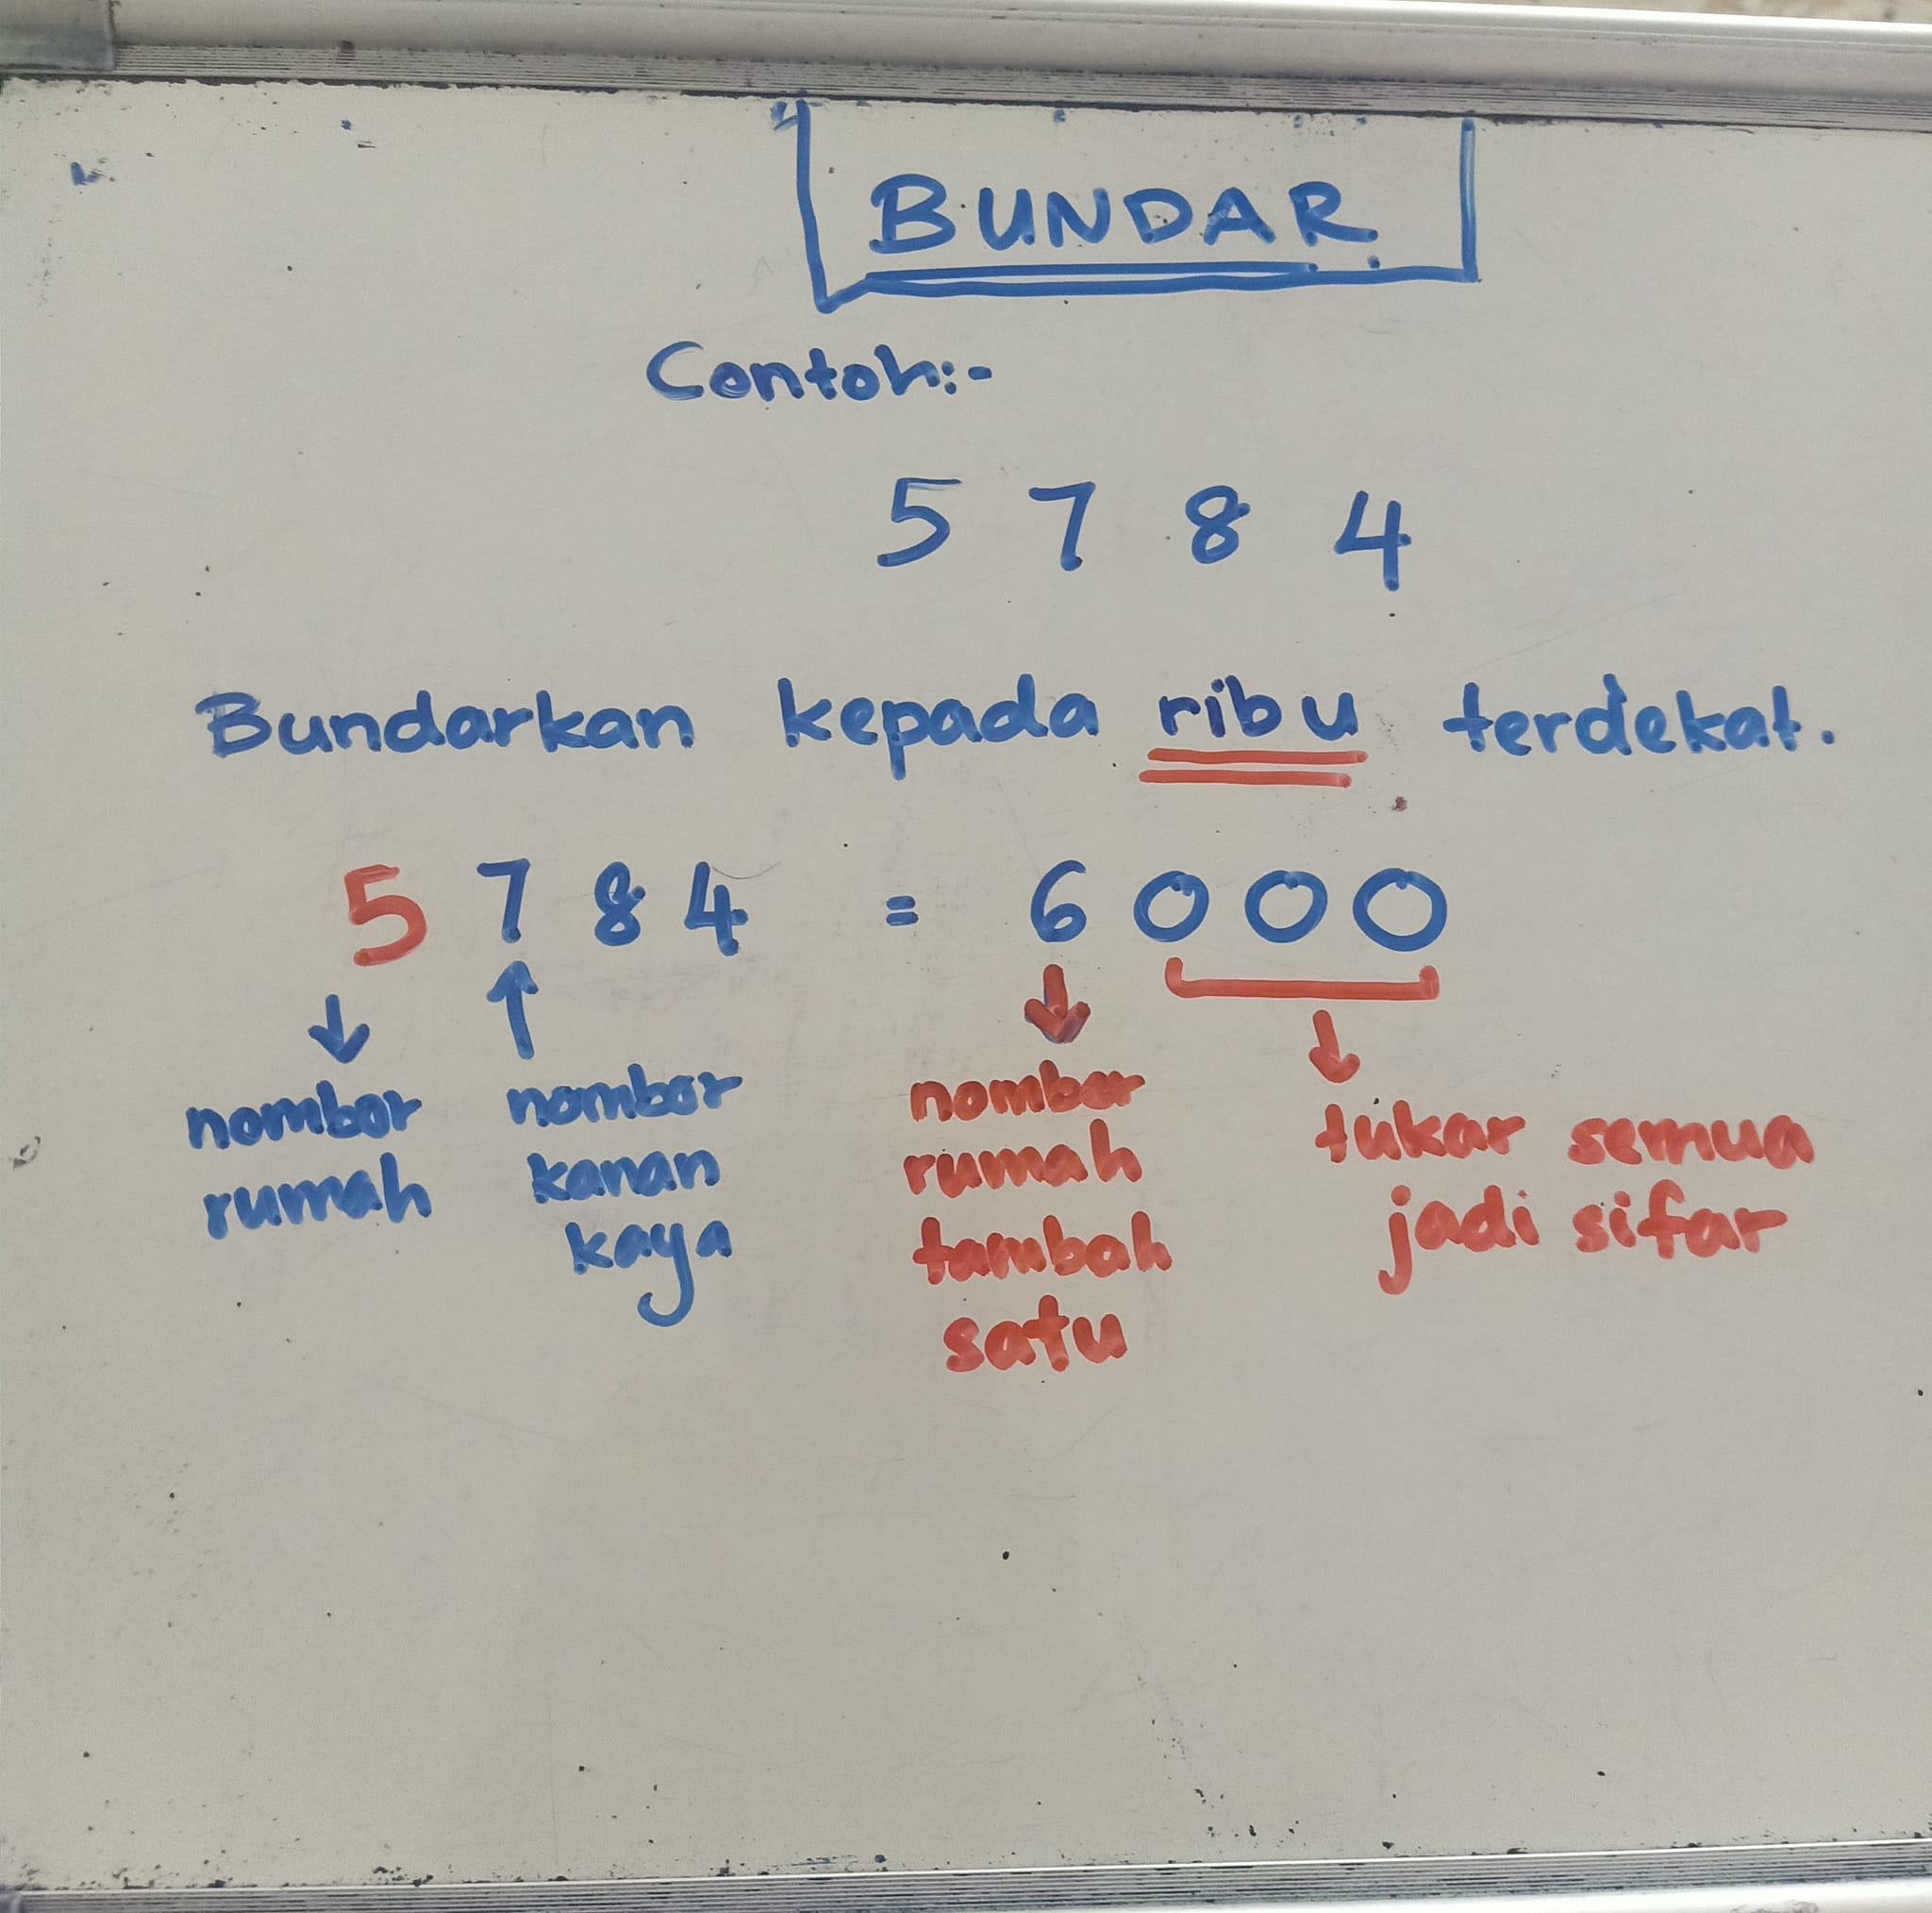 BUNDAR
Contoh:-
5 7 8 4
Bundarkan kepada ribu terdekat.
5 7 8 4 = 6 0 0 0
nombor
rumah
nombor
kanan
kaya
nombor
rumah
tambah
satu
tukar semua
jadi sifar